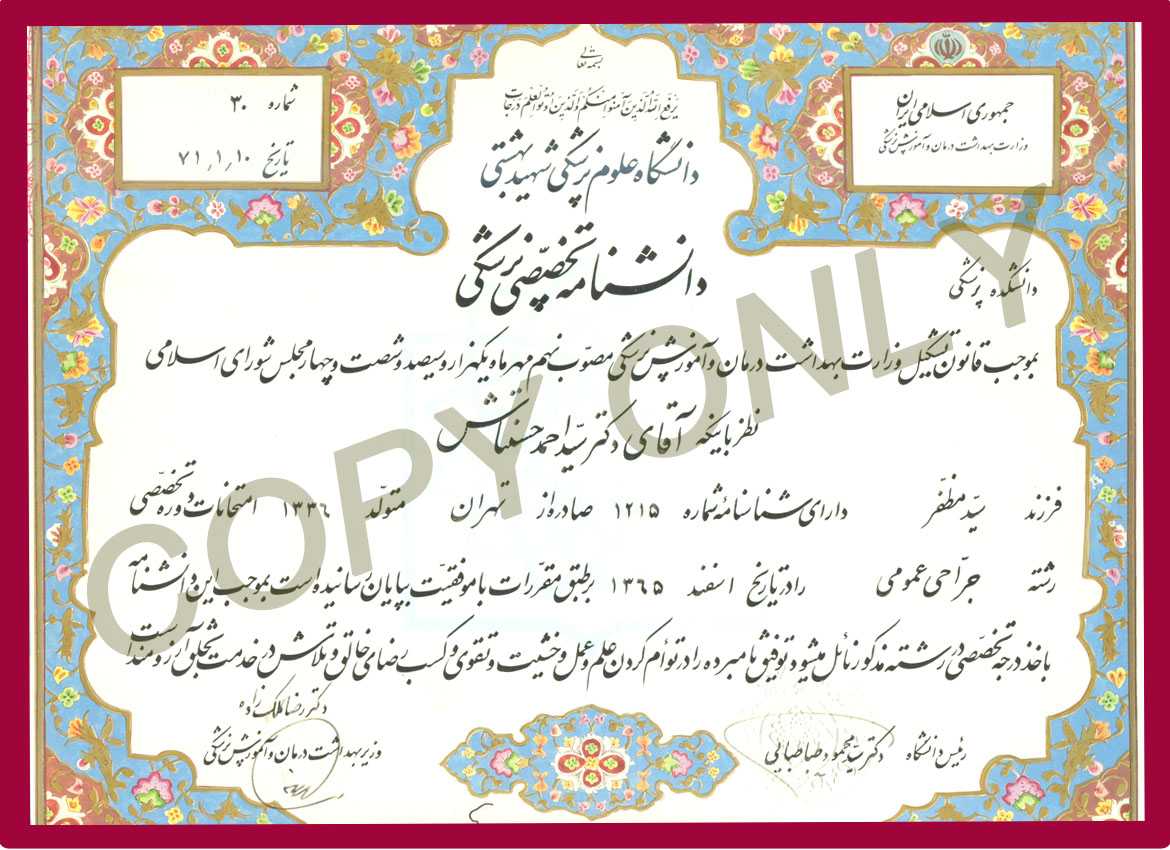 بسمه تعالی
یرفع الله الذین آمنوا منکم والذین اوتوا العلم درجات
جمهوری اسلامی ایران
وزارت بهداشت درمان و آموزش پزشکی
شماره ۳۰
تاریخ ۷۱٫۱٫۱۰
دانشگاه علوم پزشکی شهید بهشتی
دانشنامه تخصّصی پزشکی
دانشکده پزشکی
بموجب قانون تشکیل وزارت بهداشت درمان و آموزش پزشکی مصوّب نهم مهرماه یکهزار و سیصد و شصت و چهار مجلس شورای اسلامی
نظر باینکه آقای دکتر سیّد احمد
فرزند سیّد مظفّر دارای شناسنامهٔ شماره ۱۲۱۵ صادره از تهران متولّد ۱۳۳۶ امتحانات دوره تخصّصی
رشته جرّاحی عمومی را در تاریخ اسفند ۱۳۶۵ بر طبق مقرّرات با موفقیّت بپایان رسانیده است بموجب این دانشنامه
باخذ درجه تخصّصی در رشته مذکور نائل میشود و توفیق نامبرده را در توأم کردن علم و عمل و خشیت و تقوی و کسب رضای خالق و تلاش در خدمت بخلق آرزومند است
رئیس دانشگاه دکتر سیّد محمود طباطبایی
دکتر رضا ملک زاده
وزیر بهداشت درمان و آموزش پزشکی
COPY ONLY